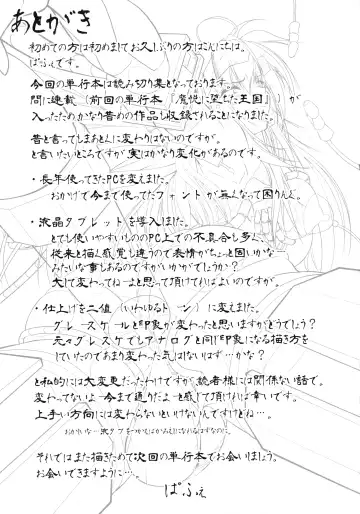 あとがき
初めての方は初めましてお久しぶりの方はこんにちは。
ぱふぇです。
今回の単行本は読み切り集となっております。
間に連載(前回の単行本『魔悦に堕ちた王国』)が
入ったためかなり昔めの作品も収録されることになりました。
昔と言ってしまあとんに変わりはないのですが。
と言いたいところですが実はかなり変化があるのです。
・長年使ってきたPCを変えました。
おかげで今まで使ってたフォントが無くなって困りんぐ。
・液晶タブレットを導入しました。
とても使いやすいもののPC上での不具合も多く、
従来と描く感覚も違うので表情がちょっと固いかな
みたいな事もあるのですがいかがでしょうか?
大して変わってねーよと思って頂ければよいのですが。
・仕上げを二値(いわゆるトーン)に変えました。
グレースケールと印象が変わったと思いますがどうでしょう?
元々グレスケでもアナログと同じ印象になる描き方を
していたのであまり変わった気はしないはず…かな?
と私的には大変更だったわけですが読者様には関係ない話で。
変わってないよ―今まで通りだよ―と感じて頂ければ幸いです。
上手い方向には変わらないといけないんですけどね…。
それではまた描きためて次回の単行本でお会いしましょう。
お会いできますように…。
ぱふぇ